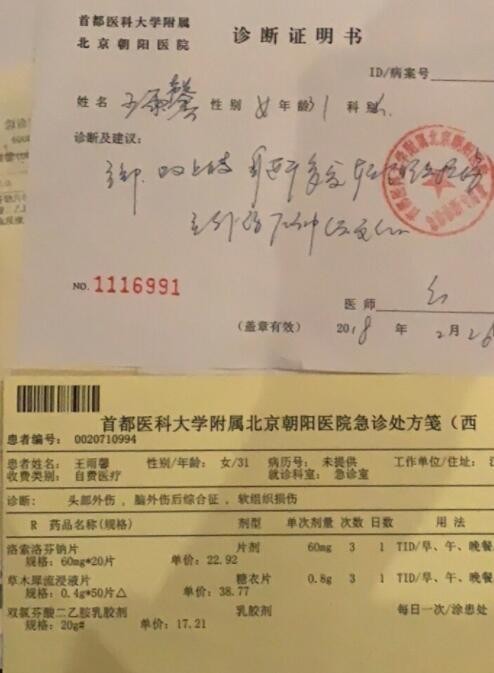 首都医科大学附属
北京朝阳医院
诊断证明书
ID/病案号
姓名 王雨馨 性别 女 年龄 31 科别
诊断及建议:
NO. 1116991
医师
(盖章有效) 2018 年 2 月 26
首都医科大学附属北京朝阳医院急诊处方笺（西
患者编号: 0020710994
患者姓名: 王雨馨 性别/年龄: 女/31 病历号: 未提供 工作单位/住址:
收费类别: 自费医疗 就诊科室: 急诊室
诊断: 头部外伤 , 脑外伤后综合征 , 软组织损伤
R 药品名称(规格) 剂型 单次剂量 次数 日数 用 法
洛索洛芬钠片 片剂 60mg 3 1 TID/早、午、晚餐
规格: 60mg*20片 单价: 22.92
草木犀流浸液片 糖衣片 0.8g 3 1 TID/早、午、晚餐
规格: 0.4g*50片△ 单价: 38.77
双氯芬酸二乙胺乳胶剂 乳胶剂 每日一次/涂患处
规格: 20g# 单价: 17.21